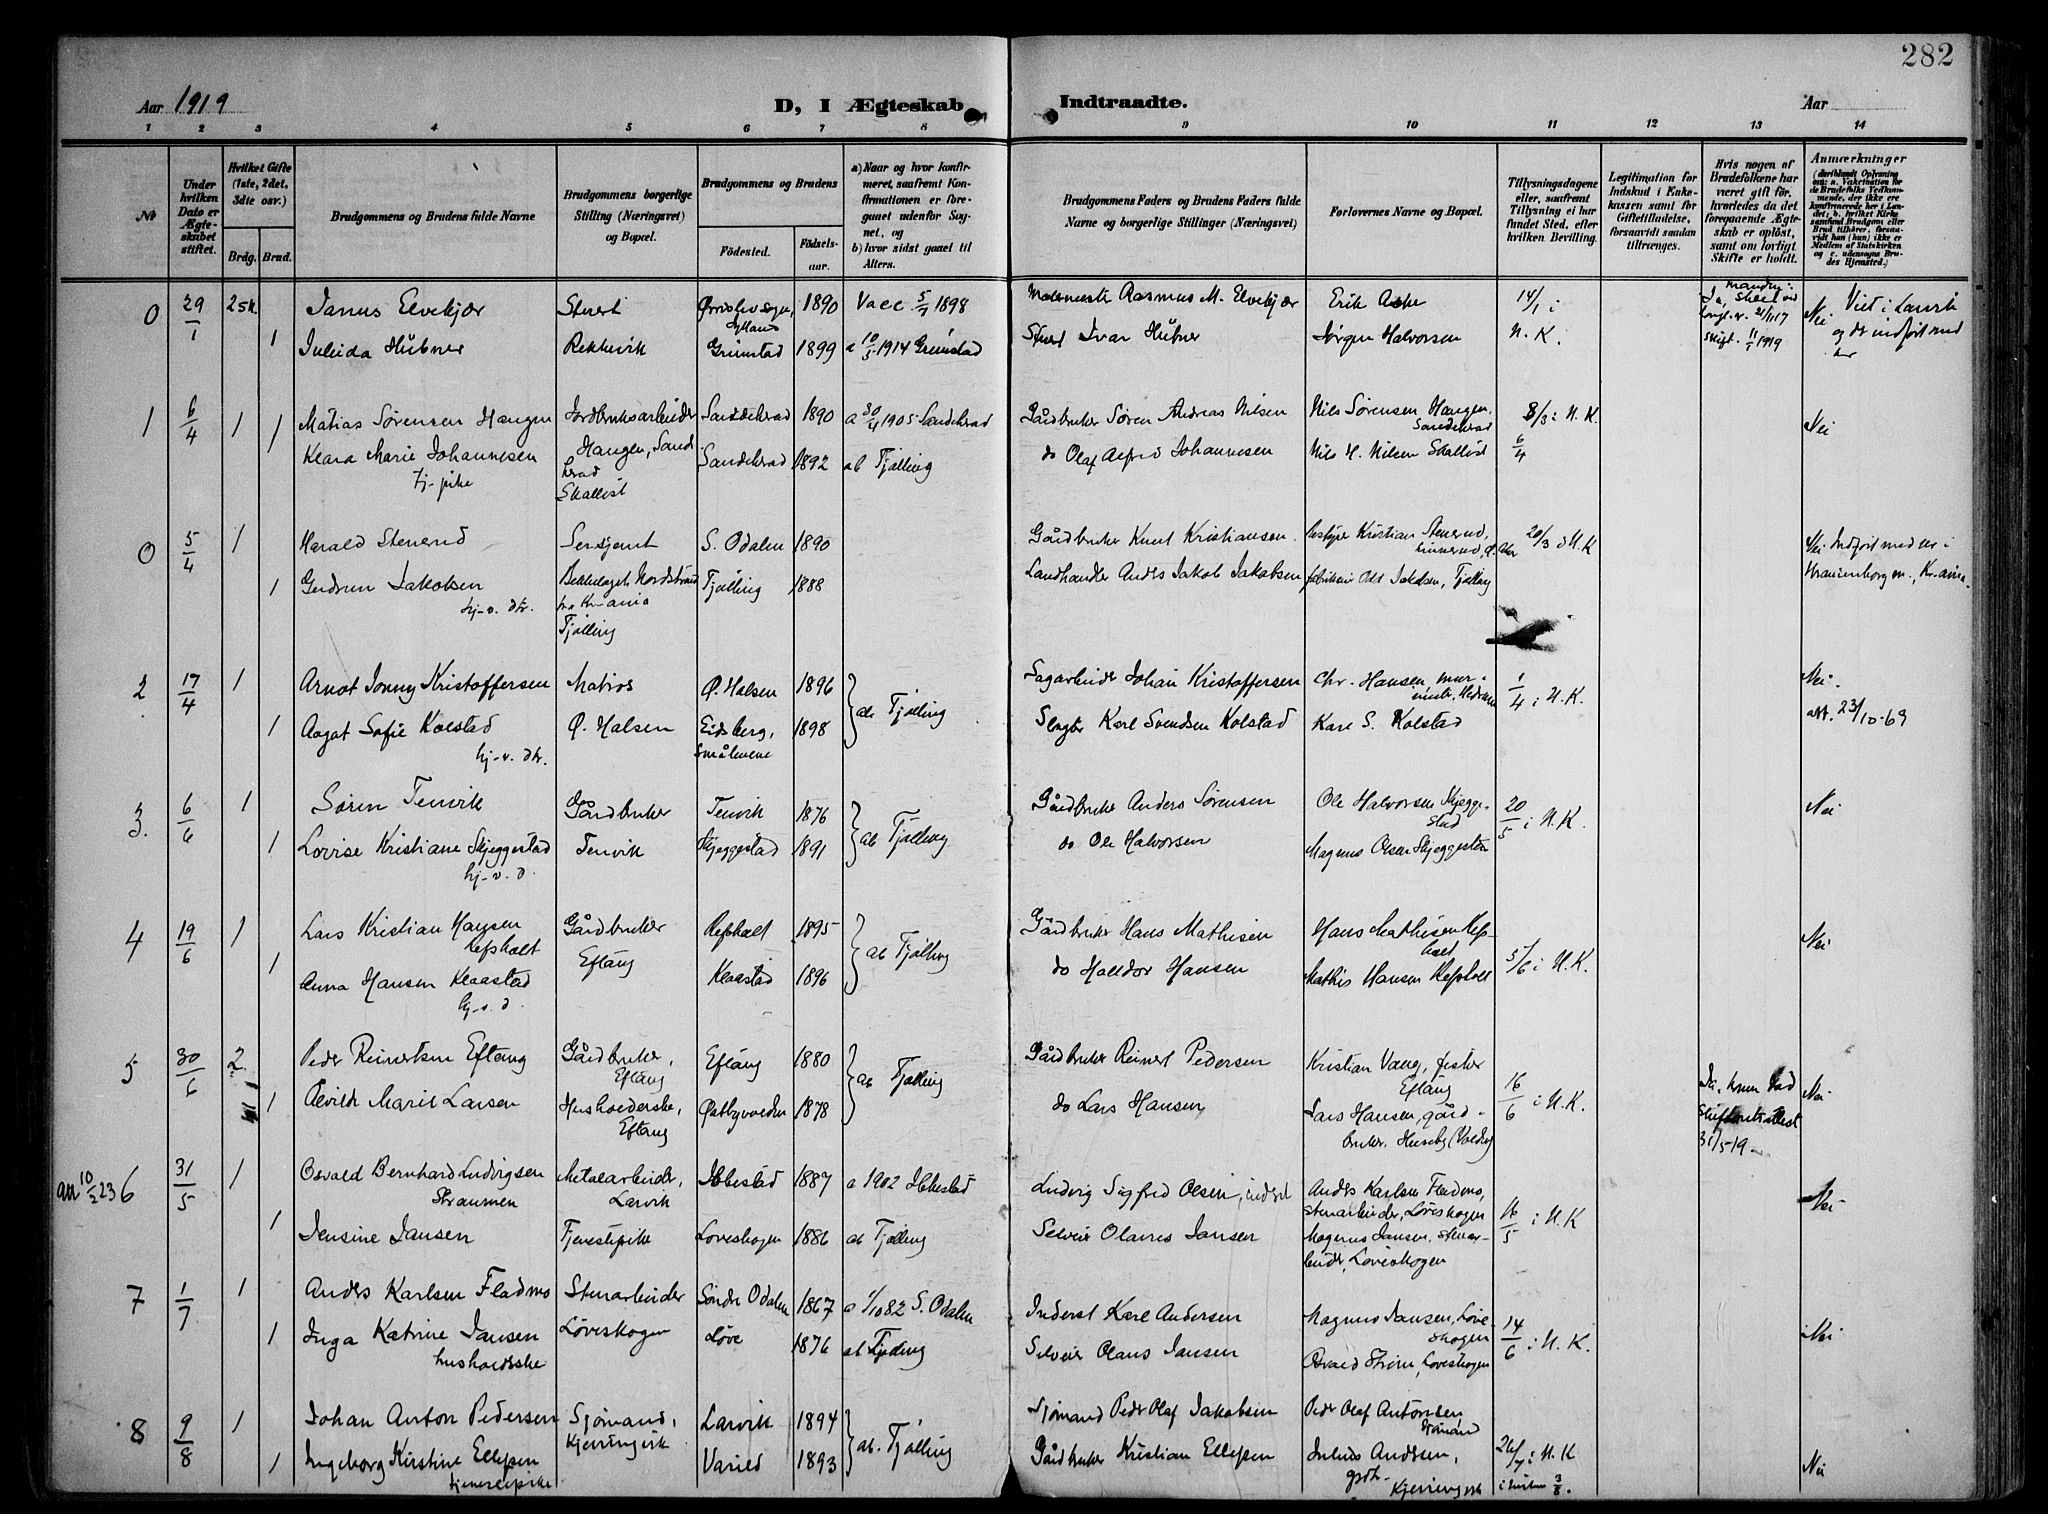 282
Aar 1919
D, I Ægteskab Indtraadte.
Aar
1 2 3 4 5 6 7 8 9 10 11 12 13 14
Nr.
Under hvilken Dato er Ægteskabet stiftet.
Hvilket Gifte (1ste, 2det, 3die osv.)
Brdg. Brud.
Brudgommens og Brudens fulde Navne
Brudgommens borgerlige Stilling (Næringsvei) og Bopæl.
Brudgommens og Brudens
Fødested. Fødselsaar.
a) Naar og hvor konfirmeret, saafremt Konfirmationen er foregaaet udenfor Sognet, og
b) hvor sidst gaaet til Alters.
Brudgommens Faders og Brudens Faders fulde Navne og borgerlige Stillinger (Næringsvei)
Forlovernes Navne og Bopæl.
Tillysningsdagene eller, saafremt Tillysning ei har fundet Sted, efter hvilken Bevilling.
Legitimation for Indskud i Enkekassen samt for Giftetilladelse, forsaavidt saadan tiltrænges.
Hvis nogen af Brudefolkene har været gift før, hvorledes da det foregaaende Ægteskab er opløst, samt om lovligt Skifte er holdt.
Anmærkninger
0 29/1 Janus Elvekjær 1890 Vacc. 5/7 1898 Rasmus M. Elvekjær Erik 14/1 i Nei
1 Juleida Hübner Rekkevik Grimstad 1899 a 10/5 1914 Grimstad Ivar Hübner Jørgen Halvorsen N. K. 1919
1 6/4 1 Matias Sørensen Haugen Jordbruksarbeider Sandeherad 1890 a 30/4 1905 Sandeherad Gårdbruker Søren Andreas Nilsen Nils Sørensen Haugen, Sandeherad 8/3 i N. K. Nei
1 Klara Marie Johannesen Haugen, Sandherad Sandeherad 1892 ab Tjølling do Olaf Alfred Johannesen Nils H. Nilsen Skallist 6/4
tj-pike Skallist
0 5/4 1 Harald Stenerud Sersjent S. Odalen 1890 Gårdbruker Knut Kristiansen Kristian Stenerud, 20/3 i N. K Nei Indført med nr i
1 Gudrun Jakobsen Nordstrand Tjølling 1888 Landhandler Anders Jakob Jakobsen Jakobsen, Tjølling
hj-v. dtr. Tjølling
2 17/4 1 Arnot Jonny Kristoffersen Matros Ø. Halsen 1896 ab Tjølling Sagarbeider Johan Kristoffersen Chr. Hansen, 1/4 i N. K. Nei.
1 Aagot Sofie Kolstad Ø. Halsen Eidsberg, Smålenene 1898 Karl Svendsen Kolstad Karl S. Kolstad att. 23/10-69
hj-v. dtr.
3. 6/6 1 Søren Tenvik Gårdbruker Tenvik 1876 ab Tjølling Gårdbruker Anders Sørensen Ole Halvorsen Skjeggestad 20/5 i N. K. Nei
1 Lovise Kristiane Skjeggestad Tenvik Skjeggestad 1891 do Ole Halvorsen Magnus Olsen Skjeggestad
hj-v. d.
4 19/6 1 Lars Kristian Hansen Refsholt Gårdbruker Refsholt 1895 ab Tjølling Gårdbruker Hans Mathisen Hans Mathisen Refsholt 5/6 i N. K. Nei
1 Anna Hansen Klaastad Eftang Klaastad 1896 do Halldor Hansen Mathis Hansen Refsholt
hj-v. d.
5 30/6 2. Peder Reinertsen Eftang Gårdbruker, Eftang Eftang 1880 ab Tjølling Gårdbruker Reinert Pedersen Kristian Vaag, fisker Eftang 16/6 i N. K. Nei
1 Alvilde Marie Larsen Husholderske, Eftang 1878 do Lars Hansen Lars Hansen, gårdbruker. Huseby 31/5 19.
an 10/2 23 6 31/5 1 Osvald Bernhard Ludvigsen Straumen Metalarbeider, Larvik Ibbestad 1887 a 1902 Ibbestad Ludvig Sigfred Olsen, inderst Anders Karlsen Fladmo, stenarbeider, Løveskogen 16/5 i N. K Nei
1 Jensine Jansen Tjenestepike Løveskogen 1886 ab Tjølling Selveier Olaves Jansen Magnus Jansen, stenarbeider, Løveskogen
7 1/7 1 Anders Karlsen Fladmo Stenarbeider Søndre Odalen 1867 a 1/10 82 S. Odalen Inderst Karl Andersen Magnus Jansen, Løveskogen 14/6 i N. K. Nei
1 Inga Katrine Jansen Løveskogen Løve 1876 ab Tjølling Selveier Olaus Jansen Osvald Strøm, Løveskogen
husholderske
8 9/8 1 Johan Anton Pedersen Sjømand, Kjerringvik Larvik 1894 ab. Tjølling Sjømand Peder Olaf Jakobsen Peder Olaf Antonsen, Sjømand 26/7 i N. K Nei
1 Ingeborg Kirstine Ellefsen Varild 1893 Gårdbruker Kristian Ellefsen Julius Andersen, grdbr. Kjerringvik 3/8.
tjenestepike